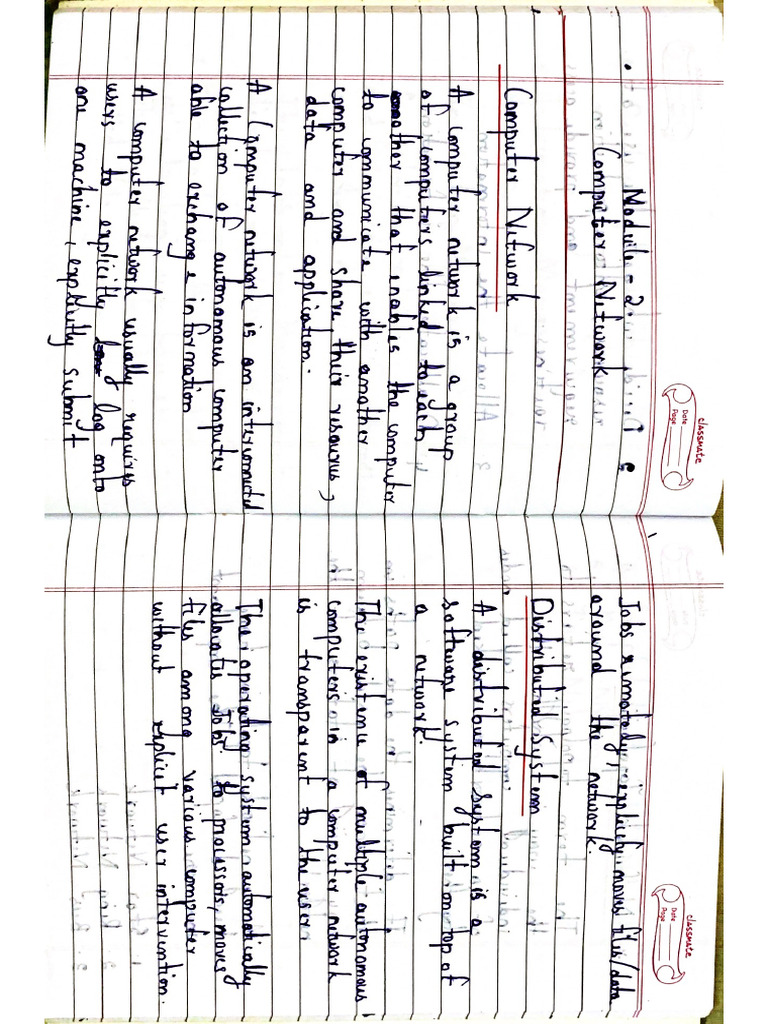 classmate
Date
Page
Module - 2
Computer Network
Computer Network
A computer network is a group
of computers linked to each
other that enables the computer
to communicate with another
computer and share their resources,
data and application.
A Computer network is an interconnected
collection of autonomous computer
able to exchange information
A computer network usually requires
users to explicitly log onto
one machine, explicitly submit
classmate
Date
Page
Jobs remotely, explicity moves files/data
around the network.
Distributed System
A distributed system is a
software system built on top of
a network.
The existence of multiple autonomous
computers in a computer network
is transparent to the user
The operating system automatically
allocates Jobs to processors, moves
files among various computer
without explicit user intervention.